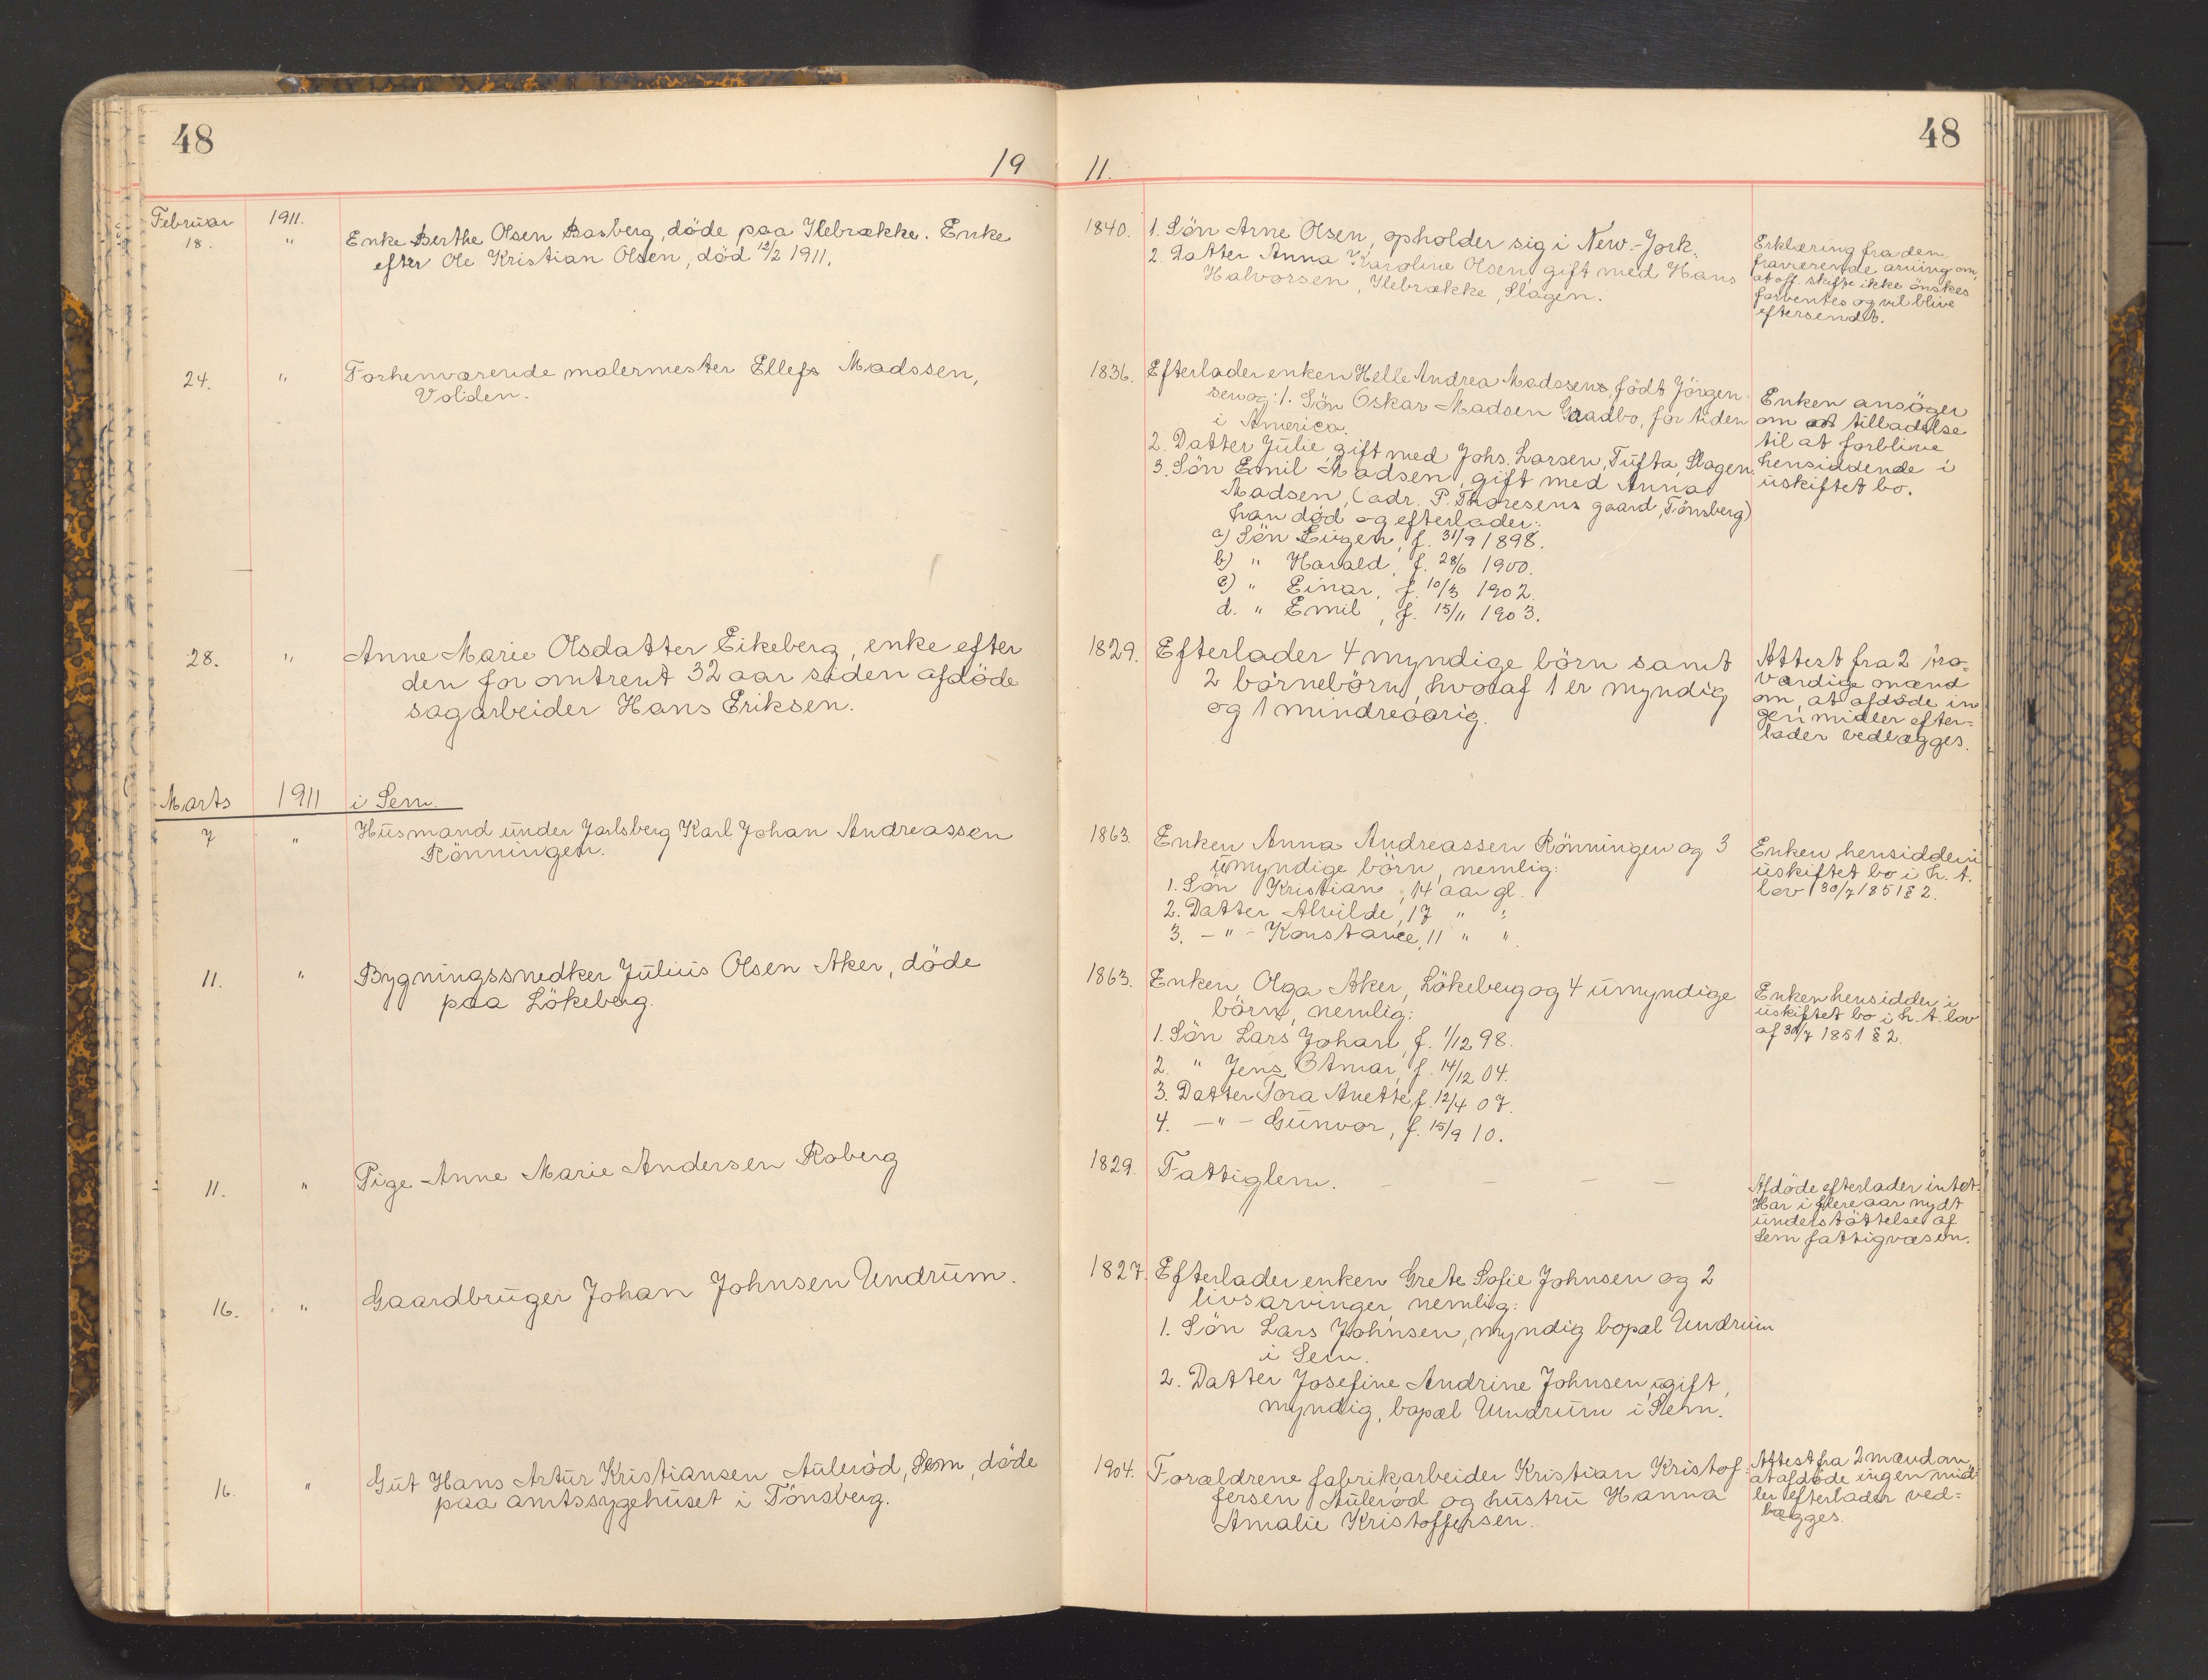 48
48
19 11.
Februar 1911.
18. " Enke Berthe Olsen Basberg, döde paa Ilebrække. Enke
efter Ole Kristian Olsen, död 12/2 1911.
1840. 1. Sön Arne Olsen, opholder sig i New-York.
2. Datter Anna Karoline Olsen, gift med Hans
Halvorsen, Ilebrække, Slagen.
Erklæring fra den
fraværende arving om,
at off. skifte ikke önskes
forventes og vil blive
eftersendt.
24. " Forhenværende malermester Ellefs Madssen,
Volden.
1836. Efterlader enken Helle Andrea Madssens, födt Jörgen
sen og: 1. Sön Oskar Madsen Gaadbo, for tiden
i America.
2. Datter Julie, gift med Johs. Larsen, Tufta, Slagen.
3. Sön Emil Madsen, gift med Anna
Madsen, (adr. P. Thoresens gaard, Tönsberg)
han död og efterlader:
a) Sön Eugen, f. 31/9 1898.
b) " Harald, f. 28/6 1900.
c) " Einar, f. 10/3 1902.
d. " Emil, f. 15/11 1903.
Enken ansöger
om at tilladelse
til at forblive
hensiddende i
uskiftet bo.
28. " Anne Marie Olsdatter Eikeberg, enke efter
den for omtrent 32 aar siden afdöde
sagarbeider Hans Eriksen.
1829. Efterlader 4 myndige börn samt
2 börnebörn, hvoraf 1 er myndig
og 1 mindreaarig.
Attest fra 2 tro-
værdige mænd
om, at afdöde in
gen midler efter=
lader vedlægges.
Marts 1911 i Sem.
7 " Husmand under Jarlsberg Karl Johan Andreassen
Rönningen.
1863. Enken Anna Andreassen Rönningen og 3
umyndige börn, nemlig:
1. Sön Kristian, 14 aar gl.
2. Datter Alvilde, 17 " "
3. -"- Konstance, 11 " "
Enken hensidder i
uskiftet bo i h. t.
lov 30/7 1851 § 2.
11. " Bygningssnedker Julius Olsen Aker, döde
paa Lökeberg.
1863. Enken Olga Aker, Lökeberg og 4 umyndige
börn, nemlig:
1. Sön Lars Johan, f. 1/12 98.
2. " Jens Otmar, f. 14/12 04.
3. Datter Tora Anette, f. 12/4 07.
4. -"- Gunvor, f. 15/9 10.
Enken hensidder i
uskiftet bo i h. t. lov
af 30/7 1851 § 2.
11. " Pige Anne Marie Andersen Roberg
1829. Fattiglem. - - - -
Afdöde efterlader intet.
Har i flere aar nydt
understöttelse af
Sem fattigvæsen.
16. " Gaardbruger Johan Johnsen Undrum.
1827. Efterlader enken Grete Sofie Johnsen og 2
livsarvinger, nemlig:
1. Sön Lars Johnsen, myndig bopæl Undrum
i Sem.
2. Datter Josefine Andrine Johnsen, ugift,
myndig, bopæl Undrum i Sem.
16. " Gut Hans Artur Kristiansen Aulerød, Sem, döde
paa amtssygehuset i Tönsberg.
1904. Forældrene fabrikarbeider Kristian Kristof-
fersen Aulerød og hustru Hanna
Amalie Kristoffersen.
Attest fra 2 mænd om,
at afdöde ingen mid
ler efterlader ved=
lægges.